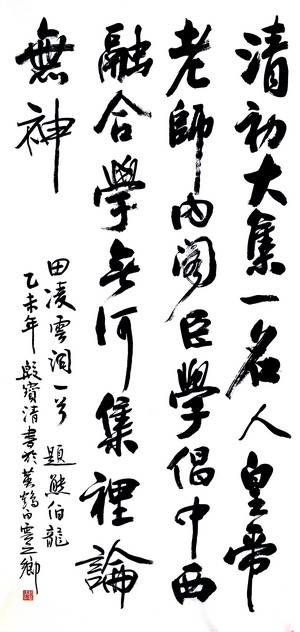 清初大集一名人皇帝
老師内阁臣學倡中西
融合學無何集裡論
無神
田凌雲詞一首 題熊伯龍
乙未年 殷寳清書於黃鶴白雲之鄉